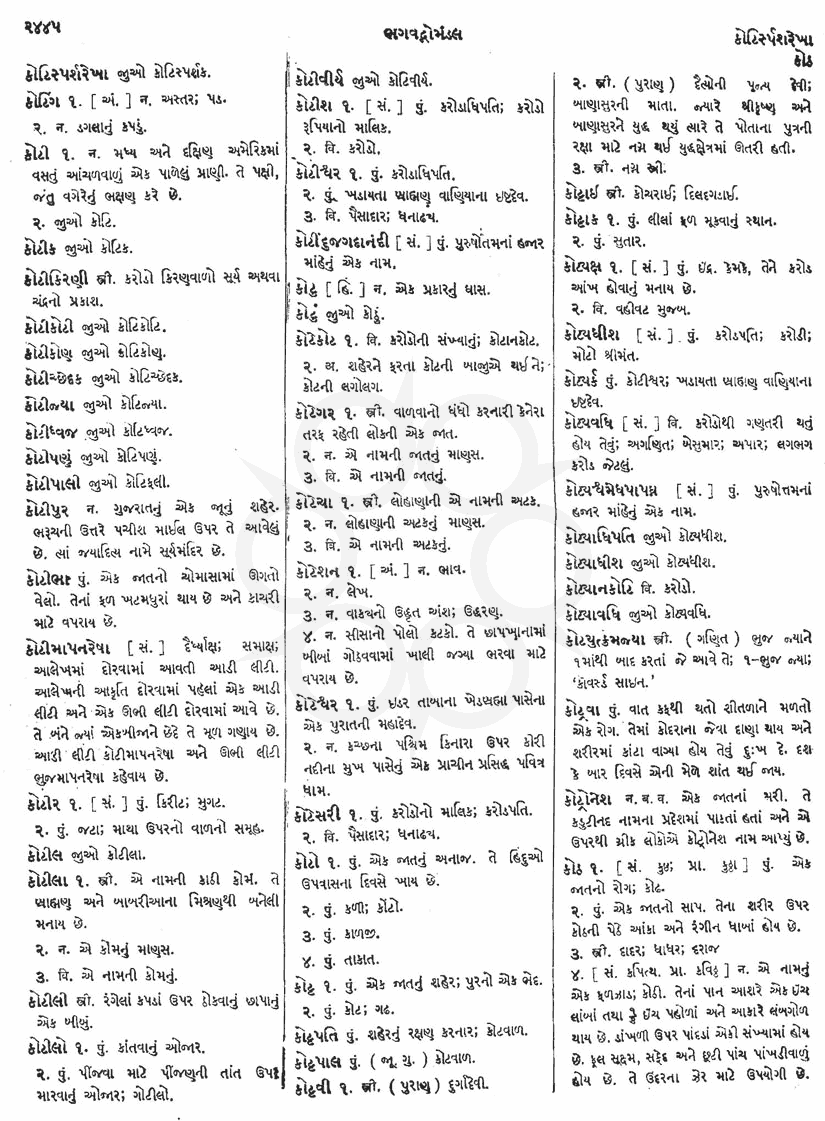 ૨૪૪૫
ભગવદ્ગોમંડલ
કોટિસ્પર્શરેખા
કોઠ
કોટિસ્પર્શરેખા જુઓ કોટિસ્પર્શક.
કોટિંગ ૧. [ અં. ] ન. અસ્તર; પડ.
૨. ન. ડગલાનું કપડું.
કોટી ૧. ન. મધ્ય અને દક્ષિણ અમેરિકામાં
વસતું આંચળવાળું એક પાળેલું પ્રાણી. તે પક્ષી,
જંતુ વગેરેનું ભક્ષણ કરે છે.
૨. જુઓ કોટિ.
કોટીક જુઓ કોટિક.
કોટીકિરણી સ્ત્રી. કરોડો કિરણવાળો સૂર્ય અથવા
ચંદ્રનો પ્રકાશ.
કોટીકોટી જુઓ કોટિકોટિ.
કોટીકોણ જુઓ કોટિકોણ.
કોટીચ્છેદક જુઓ કોટિચ્છેદક.
કોટીજ્યા જુઓ કોટિજ્યા.
કોટીધ્વજ જુઓ કોટિધ્વજ.
કોટીપણું જુઓ કોટિપણું.
કોટીપાલી જુઓ કોટિફલી.
કોટીપુર ન. ગુજરાતનું એક જૂનું શહેર.
ભરૂચની ઉત્તરે પચીશ માઇલ ઉપર તે આવેલું
છે. ત્યાં જયાદિત્ય નામે સૂર્યમંદિર છે.
કોટીભા પું. એક જાતનો ચોમાસામાં ઊગતો
વેલો. તેનાં ફળ ખટમધુરાં થાય છે અને કાચરી
માટે વપરાય છે.
કોટીમાપનરેષા [ સં. ] દૈર્ધ્યાક્ષ; સમાક્ષ;
આલેખમાં દોરવામાં આવતી આડી લીટી.
આલેખની આકૃતિ દોરવામાં પહેલાં એક આડી
લીટી અને એક ઊભી લીટી દોરવામાં આવે છે.
તે બંને જ્યાં એકબીજાને છેદે તે મૂળ ગણાય છે.
આડી લીટી કોટીમાપનરેષા અને ઊભી લીટી
ભુજમાપનરેષા કહેવાય છે.
કોટીર ૧. [ સં. ] પું. કિરીટ; મુગટ.
૨. પું. જટા; માથા ઉપરનો વાળનો સમૂહ.
કોટીલ જુઓ કોટીલા.
કોટીલા ૧. સ્ત્રી. એ નામની કાઠી કોમ. તે
બ્રાહ્મણ અને બાબરીઆના મિશ્રણથી બનેલી
મનાય છે.
૨. ન. એ કોમનું માણસ.
૩. વિ. એ નામની કોમનું.
કોટીલી સ્ત્રી. રંગેલાં કપડાં ઉપર ઠોકવાનું છાપાનું
એક બીબું.
કોટીલો ૧. પું. કાંતવાનું ઓજાર.
૨. પું. પીંજવા માટે પીંજણની તાંત ઉપર
મારવાનું ઓજાર; ગોટીલો.
કોટીવીર્ય જુઓ કોટિવીર્ય.
કોટીશ ૧. [ સં. ] પું. કરોડાધિપતિ; કરોડો
રૂપિયાનો માલિક.
૨. વિ. કરોડો.
કોટીશ્વર ૧. પું. કરોડાધિપતિ.
૨. પું. ખડાયતા બ્રાહ્મણ વાણિયાના ઇષ્ટદેવ.
૩. વિ. પૈસાદાર; ધનાઢ્ય.
કોટીંદુજગદાનંદી [ સં. ] પું. પુરુષોતમનાં હજાર
માંહેનું એક નામ.
કોટુ [ હિં. ] ન. એક પ્રકારનું ઘાસ.
કોટું જુઓ કોઠું.
કોટેકોટ ૧. વિ. કરોડોની સંખ્યાનું; કોટાનકોટ.
૨. અ. શહેરને ફરતા કોટની બાજુએ થઈને;
કોટની લગોલગ.
કોટેગર ૧. સ્ત્રી. વાળવાનો ધંધો કરનારી કેનેરા
તરફ રહેતી લોકની એક જાત.
૨. ન. એ નામની જાતનું માણસ.
૩. વિ. એ નામની જાતનું.
કોટેચા ૧. સ્ત્રી. લોહાણાની એ નામની અટક.
૨. ન. લોહાણાની અટકનું માણસ.
૩. વિ. એ નામની અટકનું.
કોટેશન ૧. [ અં. ] ન. ભાવ.
૨. ન. લેખ.
૩. ન. વાક્યનો ઉદ્ધૃત અંશ; ઉદ્ધરણ.
૪. ન. સીસાનો પોલો કટકો. તે છાપખાનામાં
બીબાં ગોઠવવામાં ખાલી જગ્યા ભરવા માટે
વપરાય છે.
કોટેશ્વર ૧. પું. ઇડર તાબાના ખેડબ્રહ્મા પાસેના
એક પુરાતની મહાદેવ.
૨. ન. કચ્છના પશ્ચિમ કિનારા ઉપર કોરી
નદીના મુખ પાસેનું એક પ્રાચીન પ્રસિદ્ધ પવિત્ર
ધામ.
કોટેસરી ૧. પું. કરોડોનો માલિક; કરોડપતિ.
૨. વિ. પૈસાદાર; ધનાઢ્ય.
કોટો ૧. પું. એક જાતનું અનાજ. તે હિંદુઓ
ઉપવાસના દિવસે ખાય છે.
૨. પું. કળી; કોંટો.
૩. પું. કાળજી.
૪. પું. તાકાત.
કોટ્ટ ૧. પું. એક જાતનું શહેર; પુરનો એક ભેદ.
૨. પું. કોટ; ગઢ.
કોટ્ટપતિ પું. શહેરનું રક્ષણ કરનાર; કોટવાળ.
કોટ્ટપાલ પું. ( જૂ. ગુ. ) કોટવાળ.
કોટ્ટવી ૧. સ્ત્રી. ( પુરાણ ) દુર્ગાદેવી.
૨. સ્ત્રી. ( પુરાણ ) દૈત્યોની પૂજ્ય દેવી;
બાણાસુરની માતા. જ્યારે શ્રીકૃષ્ણ અને
બાણાસુરને યુદ્ધ થયું ત્યારે તે પોતાના પુત્રની
રક્ષા માટે નગ્ન થઈ યુદ્ધક્ષેત્રમાં ઊતરી હતી.
૩. સ્ત્રી. નગ્ન સ્ત્રી.
કોટ્ટાઈ સ્ત્રી. કોચરાઈ; દિલદગડાઈ.
કોટ્ટાક ૧. પું. લીલાં ફળ મૂકવાનું સ્થાન.
૨. પું. સુતાર.
કોટ્યક્ષ ૧. [ સં. ] પું. ઇંદ્ર. કેમકે, તેને કરોડ
આંખ હોવાનું મનાય છે.
૨. વિ. વહીવટ મુજબ.
કોટ્યધીશ [ સં. ] પું. કરોડપતિ; કરોડી;
મોટો શ્રીમંત.
કોટ્યર્ક પું. કોટીશ્વર; ખડાયતા બ્રાહ્મણ વાણિયાના
ઇષ્ટદેવ.
કોટ્યવધિ [ સં. ] વિ. કરોડોથી ગણતરી થતું
હોય તેવું; અગણિત; બેસુમાર; અપાર; લગભગ
કરોડ જેટલું.
કોટ્યશ્વમેધપાપઘ્ન [ સં. ] પું. પુરુષોત્તમનાં
હજાર માંહેનું એક નામ.
કોટ્યાધિપતિ જુઓ કોટ્યધીશ.
કોટ્યાધીશ જુઓ કોટ્યધીશ.
કોટ્યાનકોટિ વિ. કરોડો.
કોટ્યાવધિ જુઓ કોટ્યવધિ.
કોટ્યુત્ક્રમજ્યા સ્ત્રી. ( ગણિત ) ભુજ જ્યાને
૧માંથી બાદ કરતાં જે આવે તે; ૧-ભુજ જ્યા;
‘કૉવર્સ્ડ સાઇન.’
કોટ્રવા પું. વાત કફથી થતો શીતળાને મળતો
એક રોગ. તેમાં કોદરાના જેવા દાણા થાય અને
શરીરમાં કાંટા વાગ્યા હોય તેવું દુઃખ દે. દશ
કે બાર દિવસે એની મેળે શાંત થઈ જાય.
કોટ્રોનેશ ન. બ. વ. એક જાતનાં મરી. તે
કદુટીનદ નામના પ્રદેશમાં પાકતાં હતાં અને એ
ઉપરથી ગ્રીક લોકોએ કોટ્રોનેશ નામ આપ્યું છે.
કોઠ ૧. [ સં. કુષ્ઠ; પ્રા. કુઠ્ઠ ] પું. એક
જાતનો રોગ; કોઢ.
૨. પું. એક જાતનો સાપ. તેના શરીર ઉપર
કોઠની પેઠે આંકા અને રંગીન ધાબાં હોય છે.
૩. સ્ત્રી. દાદર; ધાધર; દરાજ
૪. [ સં. કપિત્થ. પ્રા. કવિઠ્ઠ ] ન. એ નામનું
એક ફળઝાડ; કોઠી. તેનાં પાન આશરે એક ઇંચ
લાંબાં તથા ઇંચ પહોળાં અને આકારે લંબગોળ
થાય છે. ડાંખળી ઉપર પાંદડાં એકી સંખ્યામાં હોય
છે. ફૂલ સૂક્ષ્મ, સફેદ અને છુટી પાંચ પાંખડીવાળું
હોય છે. તે ઉંદરના ઝેર માટે ઉપયોગી છે.